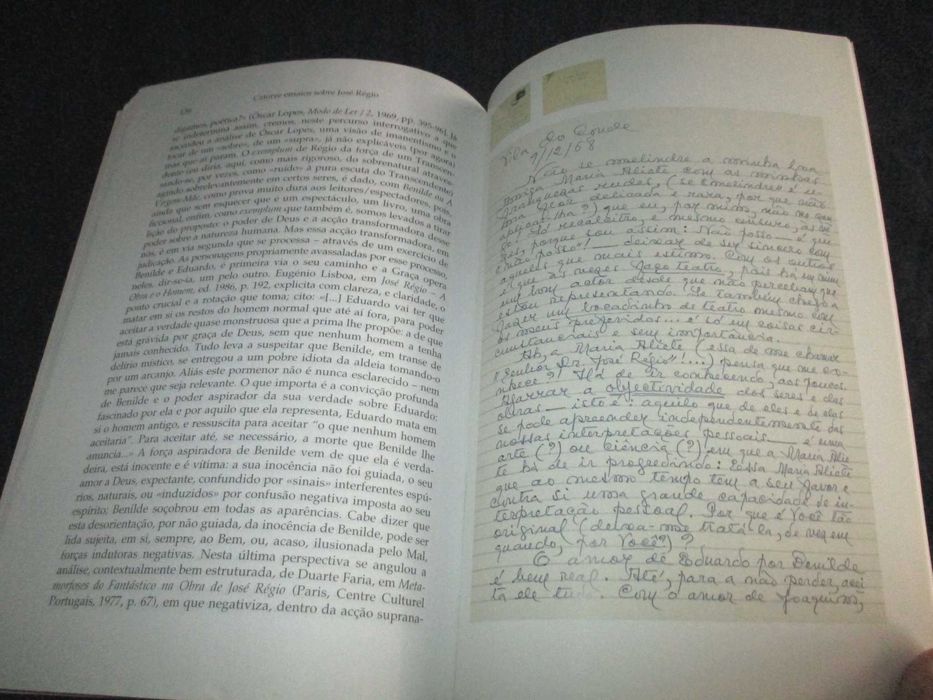 Catorze ensaios sobre José Régio
digamos, poética?» (Óscar Lopes, Modo de Ler / 2, 1969, pp. 395-96). Já
se indetermina assim, cremos, neste percurso interrogativo a que
ascendeu a análise de Óscar Lopes, uma visão de imanentismo, e o
tocar de um «sobre», de um «supra», já não explicáveis (por agora)
mas que aí param. O exemplum de Régio da força de um Transcen-
dente (eu diria, aqui, como mais rigoroso, do sobrenatural atraves-
sando-se, por vezes, como «ruído» à pura escuta do Transcendente)
agindo sobrelevantemente em certos seres, é dado, com Benilde ou A
Virgem-Mãe, como prova muito dura aos leitores/espectadores, pois,
ainda que sem esquecer que é um espectáculo, um livro, uma obra
ficcional, enfim, como exemplum que também é, somos levados a tirar
lição do proposto: o poder de Deus e a acção transformadora desse
poder sobre a natureza humana. Mas esta acção transformadora, em
nós, é em via segunda que se processa – através de um exercício de
judicação. As personagens propriamente avassaladas por esse processo,
Benilde e Eduardo, é primeira via o seu caminho e a Graça opera
neles, dir-se-ia, um pelo outro. Eugénio Lisboa, em José Régio – A
Obra e o Homem, ed. 1986, p. 192, explicita com clareza, e claridade, o
ponto crucial e a rotação que toma; cito: «[...] Eduardo vai ter que
matar em si os restos do homem normal que até aí fora, para poder
aceitar a verdade quase monstruosa que a prima lhe propõe: a de que
está grávida por graça de Deus, sem que nenhum homem a tenha
jamais conhecido. Tudo leva a suspeitar que Benilde, em transe de
delírio místico, se entregou a um pobre idiota da aldeia tomando-o
por um arcanjo. Aliás este pormenor não é nunca esclarecido – nem
me parece que seja relevante. O que importa é a convicção profunda
de Benilde e o poder aspirador da sua verdade sobre Eduardo:
fascinado por ela e por aquilo que ela representa, Eduardo mata em
si o homem antigo, e ressuscita para aceitar "o que nenhum homem
aceitaria". Para aceitar até, se necessário, a morte que Benilde lhe
anuncia...» A força aspiradora de Benilde vem de que ela é verda-
deira, está inocente e é vítima: a sua inocência não foi guiada, o seu
amor a Deus, expectante, confundido por «sinais» interferentes espú-
rios, naturais, ou «induzidos» por confusão negativa imposta ao seu
espírito; Benilde soçobrou em todas as aparências. Cabe dizer que
esta desorientação, por não guiada, da inocência de Benilde, pode ser
lida sujeita, em si, sempre, ao Bem, ou, acaso, ilusionada pelo Mal,
forças indutoras negativas. Nesta última perspectiva se angulou a
análise, contextualmente bem estruturada, de Duarte Faria, em Meta-
morfoses do Fantástico na Obra de José Régio (Paris, Centre Culturel
Portugais, 1977, p. 67), em que negativiza, dentro da acção suprana-
Vila do Conde
7/12/68
Não se melindre a minha boa
amiga Maria Aliete com as minhas
franquezas rudes, (se o melindre é u-
ma flor delicada e rara, por que não
apanhá-la?) que eu, por mim, não me
Só recalcitro, e mesmo censuro, às ve-
zes, porque sou assim: Não posso – é que
não posso! – deixar de ser sincero com
aqueles que mais estimo. Com os outros
é que às vezes faço teatro, pois há em mim
um bom actor desde que não percebam que
estou representando. Se também chego a
fazer um bocadinho de teatro mesmo com
os meus preferidos... é só em coisas cir-
cunstanciais e sem importância.
Ah, a Maria Aliete (essa de me chamar
«Senhor Dr. José Régio»!...) pensa que me co-
nhece?! Há-de ir conhecendo, aos poucos.
Agarrar a objectividade dos seres e das
obras – isto é: aquilo que de eles e de elas
se pode apreender independentemente das
nossas interpretações pessoais – é uma
arte (?) ou ciência (?) em que a Maria Alie-
te há de ir progredindo: Essa Maria Aliete
que ao mesmo tempo tem a seu favor e
contra si uma grande capacidade de in-
terpretação pessoal. Por que é Você tão
original (deixa-me tratá-la, de vez em
quando, por Você?)?
O amor de Eduardo por Benilde
é bem real. Até, para a não perder, acei-
ta ele tudo. Com o amor de Joaquim,